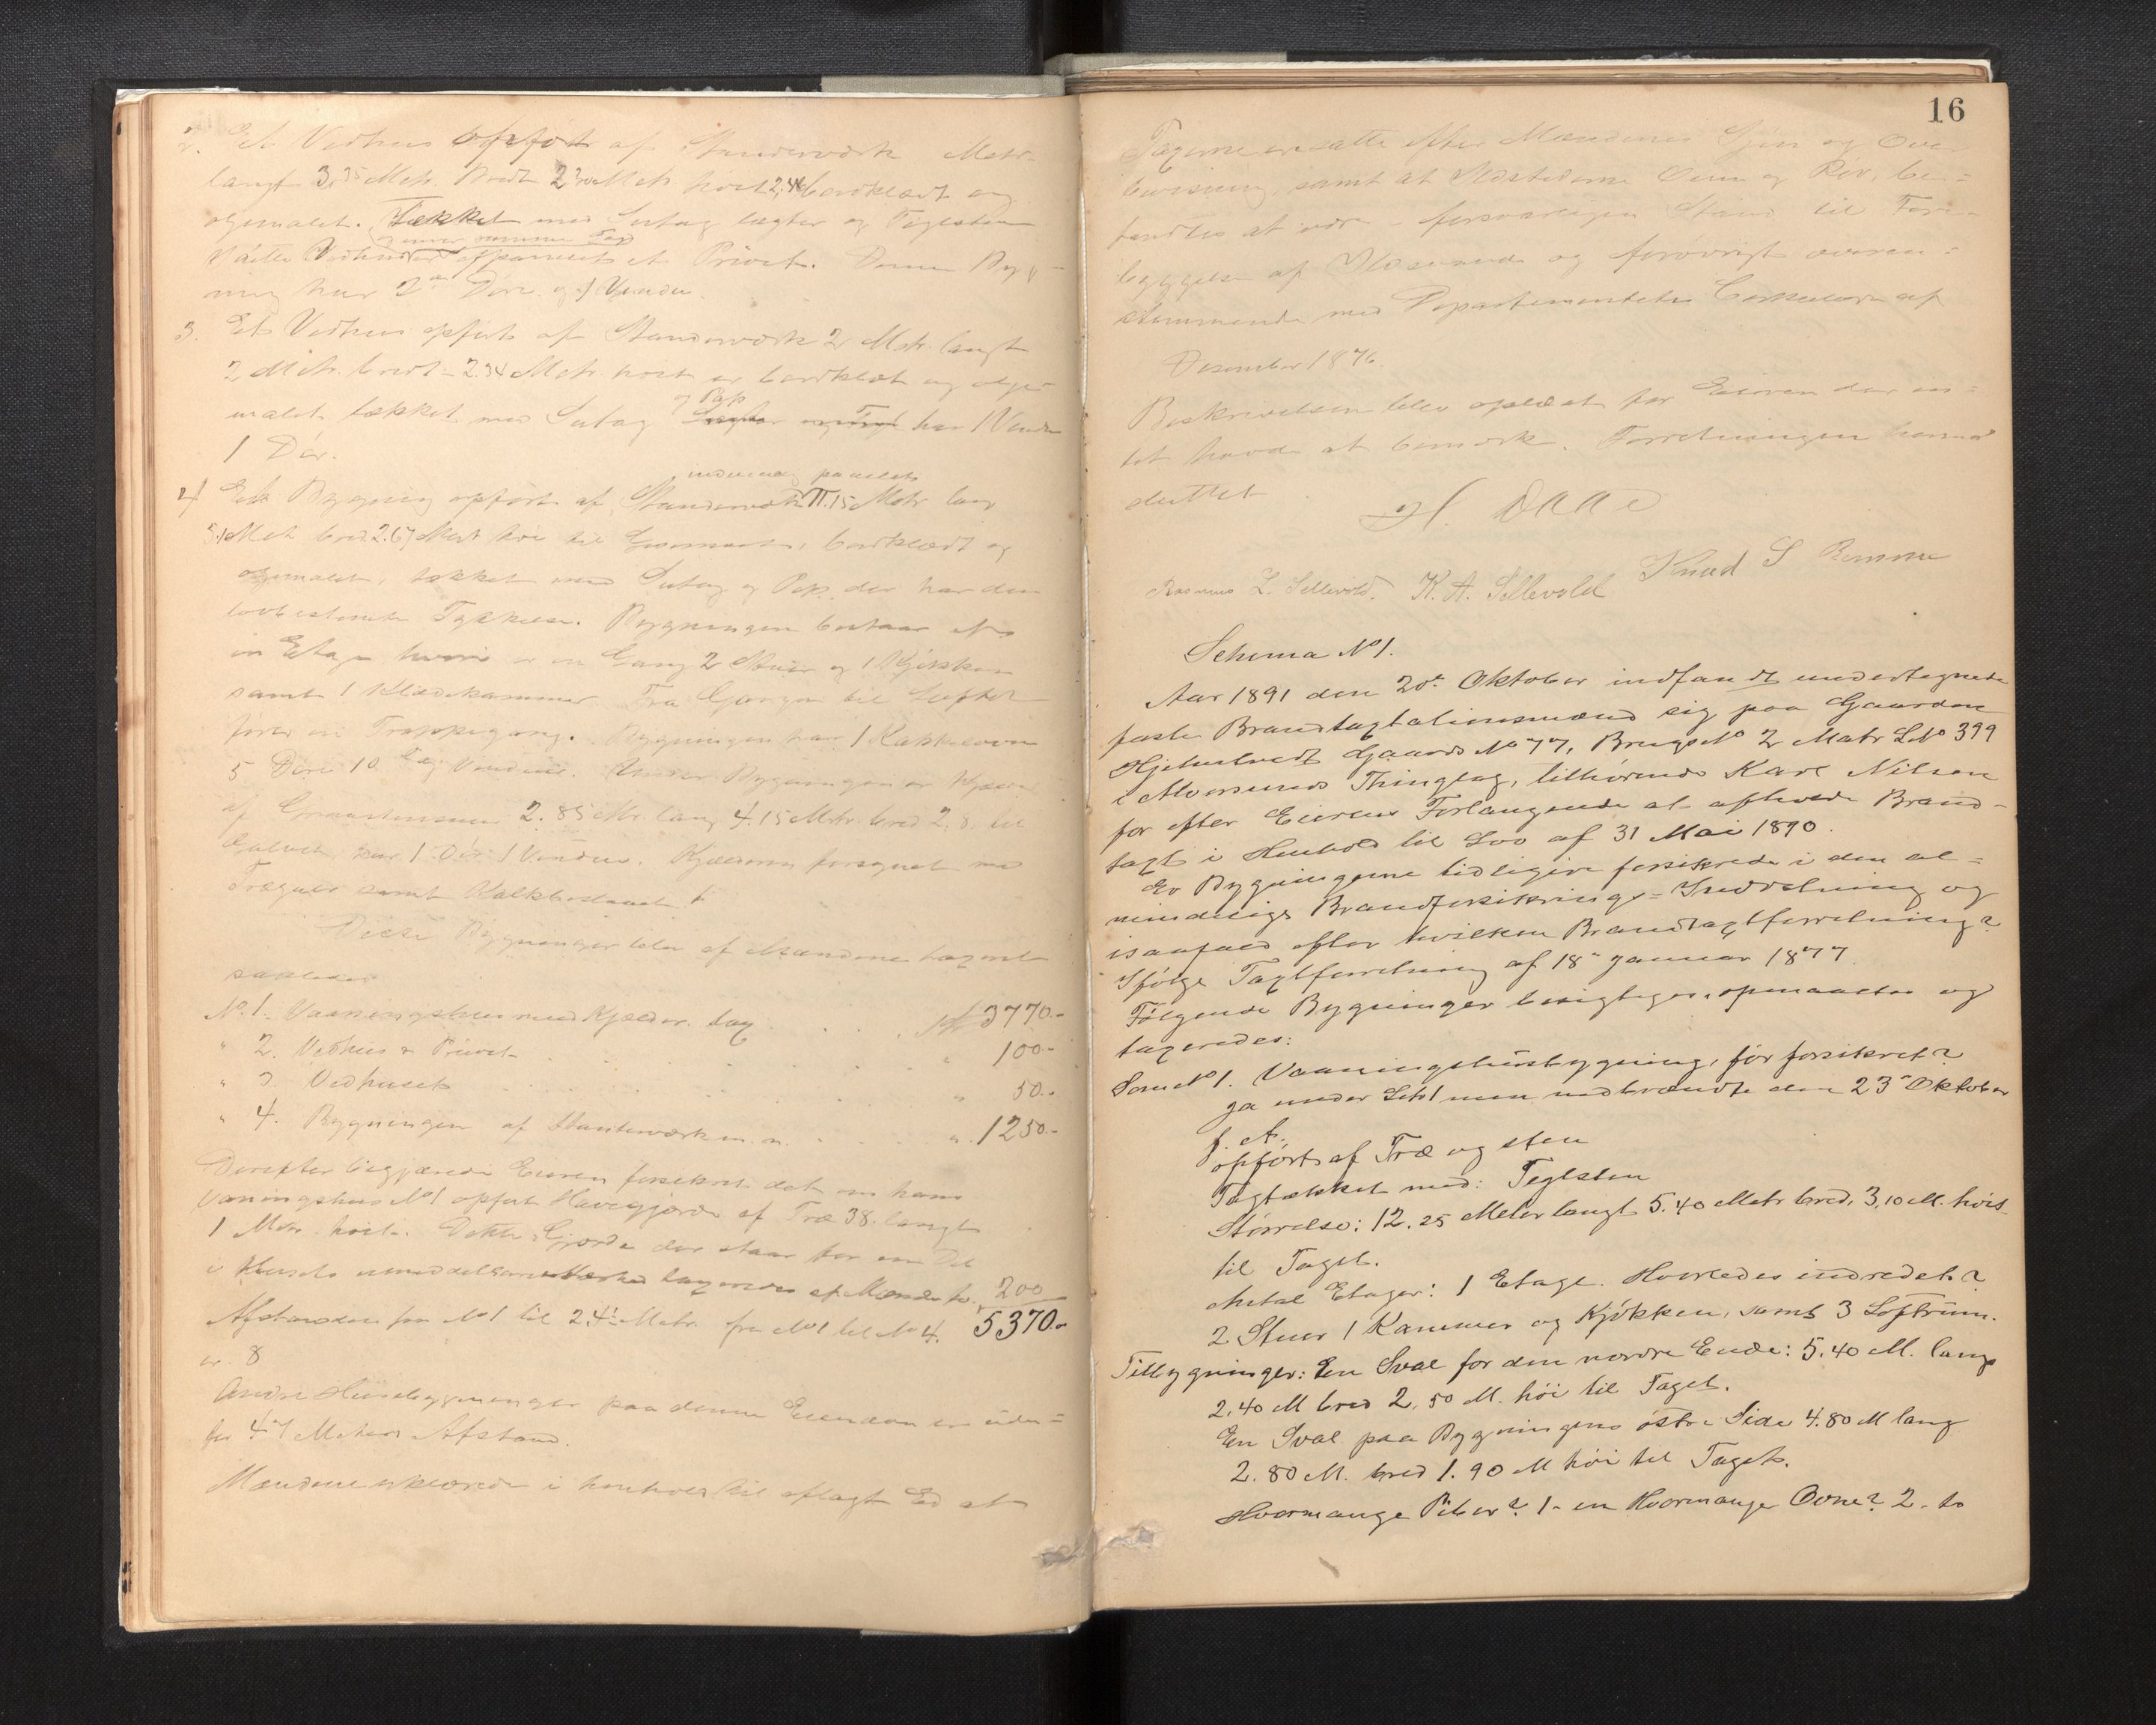 2. Et Vedhus opført af Standerværk Metr.
langt 3.35 Metr. bredt 2.30 Metr. høit 2.48 bordklædt og
oljemalet. Tækket med Sutag lægter og Teglsten
og under samme Tag
I dette Vedhus er afpanelet et Privet. Denne Byg-
ning har 2 Døre og 1 Vindu.
3. Et Vedhus opført af Standerværk 2 Metr. langt
2 Metr. bredt 2.34 Metr. høit er bordklæt og olje-
og Pap
malet tækket med Sutag har 1 Vindu
1 Dør.
indvendig panelet
4 Et Bygning opført af Standerværk 11.15 Metr. lang
5.1 Metr. bred 2.67 Metr. høi til bordklædt og
oljemalet, tækket med Sutag og Pap, der har den
lovbestemte Tykkelse. Bygningen bestaar af
en Etage hvori er en Gang 2 Stuer og 1 Kjøkken
samt 1 Klædekammer Fra Gangen til Loftet
fører en Trappegang. Bygningen har 1 Kakkelovn
5 Døre 10 Vinduer. Under Bygningen er Kjælder
af Graastensmur 2.85 Mtr. lang 4.15 Metr. bred 2.8. til
Gulvet, har 1 Dør 1 Vindue. Kjælderen forsynet med
Trægulv samt Kalkbeslaaet
Disse Bygninger blev af Mændene taxeret
saaledes
No. 1. Vaaningshus med Kjælder. tax. . . . 3770.-
" 2. Vedhus & Privet . . . " 100.-
" 3. Vedhuset . . . " 50.-
" 4. Bygningen af Standerværk m. m. . . . " 1250.-
Derefter begjærede Eieren forsikret det om hans
Vaningshus No 1 opført Havegjærde af Træ 38. langt
1 Metr. høit. Dette Gjærde der staar for en Del
i Husets umiddelbare Nærhed taxeredes af Mændene to. 200
Afstanden fra No 1 til 2 4 Metr. fra No 1 til No 4. 5370.-
er. 8
Andre Husebygninger paa denne Eiendom er uden-
for 47 Meters Afstand.
Mændene erklærede i henhold til aflagt Ed at

16
Taxerne ere satte efter Mændenes Skjøn og Over-
bevisning, samt at Ildstederne Ovne og Rør, be-
fandtes at være i forsvarligen Stand til Fore-
byggelse af Ildsvaade og forøvrigt overen-
stemmende med Departementets Cirkulære af
Desember 1876.
Beskrivelsen blev oplæst for Eieren der in-
tet havde at bemærke. Forretningen hermed
sluttet
H. Daae
Rasmus L. Sellevold. K. A. Sellevold Knud S Remme
Schema No 1.
Aar 1891 den 20de Oktober indfandt undertegnede
faste Brandtaxtationsmænd sig paa Gaarden
Hjelmtvedt Gaards No 77, Brugs No 2 Matr L No 399
i Alversunds Thinglag, tilhørende Karl Nilsen
for efter Eierens Forlangende at afholde Brand-
taxt i Henhold til Lov af 31 Mai 1890.
Er Bygningerne tidligere forsikrede i den al-
mindelige Brandforsikrings-Indretning og
isaafald efter hvilken Brandtaxtforretning?
Ifølge Taxtforretning af 18de Januar 1877.
Følgende Bygninger besigtiges, opmaaltes og
taxeredes:
Som No 1. Vaaningshusbygning, før forsikret?
Ja under Litr 1 men nedbrændte den 23de Oktober
f. A.
opført af Træ og sten
Tagtækket med: Teglsten
Størrelse: 12.25 Meter langt 5.40 Metr bred, 3,10 M. høit
til Taget.
Antal Etager: 1 Etage. Hvorledes indredet?
2 Stuer 1 Kammer og Kjøkken, samt 3 Loftrum.
Tilbygninger: En Sval for den nordre Ende: 5.40 M. lang
2.40 M bred 2.50 M. høi til Taget.
En Sval paa Bygningens østre Side 4.80 M lang
2.80 M. bred 1.90 M høi til Taget.
Hvormange Piber? 1- en Hvormange Ovne? 2- to